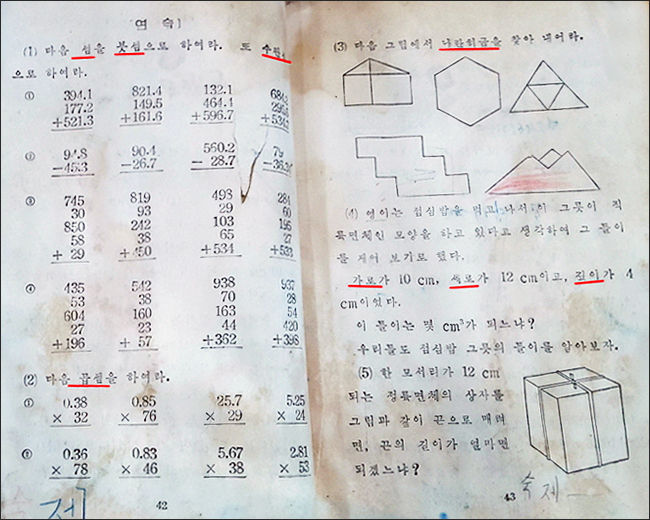 연 습 1
(1) 다음 셈을 붓셈으로 하여라. 또
으로 하여라.
① 394.1 821.4 132.1
177.2 149.5 464.4
+521.3 +161.6 +596.7
② 94.8 90.4 560.2 79
−45.3 −26.7 − 28.7
③ 745 819 493 284
30 93 29 60
850 242 103 195
58 38 65 27
+ 29 +450 +534 +533
④ 435 542 938 937
53 38 70 28
604 160 163 54
27 23 44 420
+196 + 57 +362 +398
(2) 다음 곱셈을 하여라.
① 0.38 0.85 25.7 5.25
× 32 × 76 × 29 × 24
② 0.36 0.83 5.67 2.81
× 78 × 46 × 38 × 53
제
42
(3) 다음 그림에서 나란히금을 찾아 내어라.
(4) 영이는 점심밥을 먹고 나서 이 그릇이 직
륙면체인 모양을 하고 있다고 생각하여 그 들이
를 재어 보기로 했다.
가로가 10 cm, 세로가 12 cm이고, 깊이가 4
cm이었다.
이 들이는 몇 cm³가 되느냐?
우리들도 점심밥 그릇의 들이를 알아보자.
(5) 한 모서리가 12 cm
되는 정륙면체의 상자를
그림과 같이 끈으로 매려
면, 끈의 길이가 얼마면
되겠느냐?
43
숙제